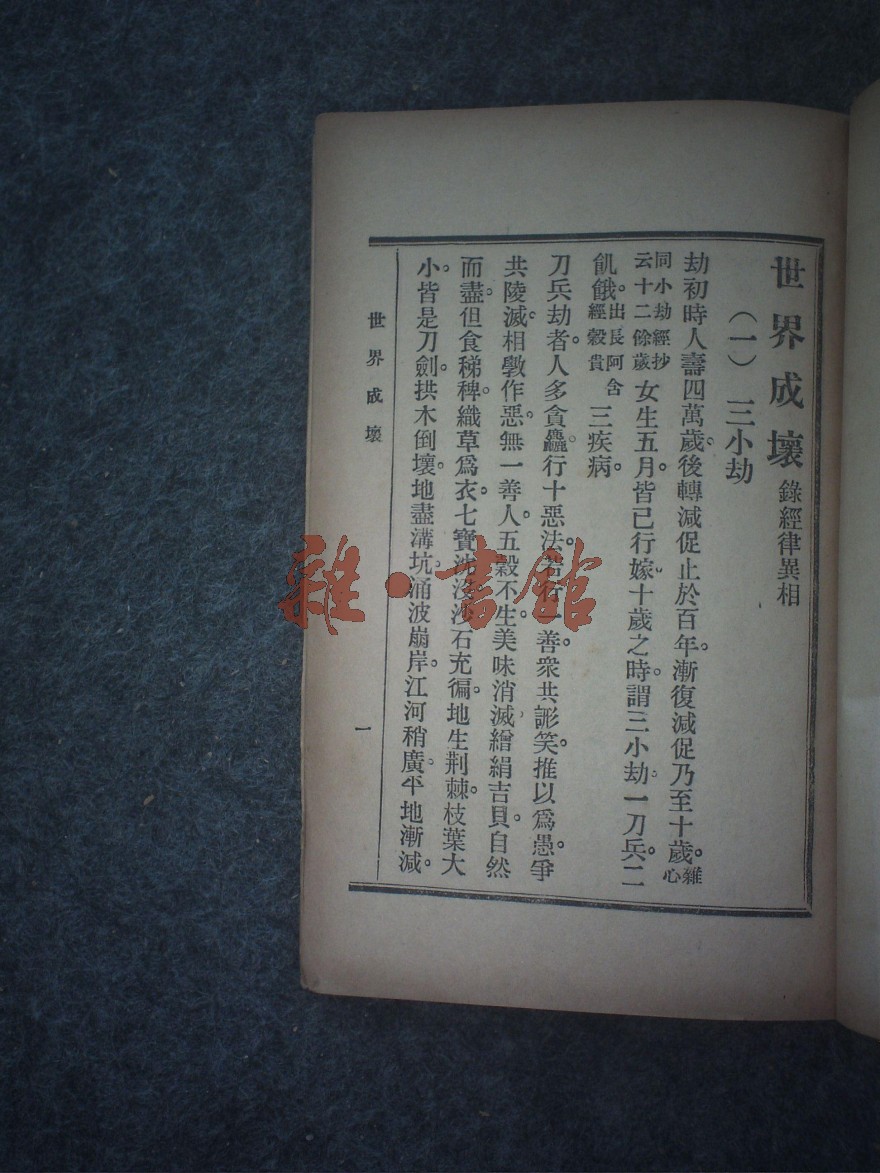 世界成壞 錄經律異相
(一) 三小劫
劫初時人壽四萬歲。後轉減促止於百年。漸復減促乃至十歲。雜心
同小劫經抄云十二餘歲女生五月。皆已行嫁十歲之時。謂三小劫。一刀兵。二
飢餓。出長阿含經穀貴三疾病。
刀兵劫者。人多貪龘。行十惡法。若行一善。衆共謗笑。推以爲愚。爭
共陵滅。相斆作惡。無一善人。五穀不生。美味消滅。繒絹吉貝。自然
而盡。但食稊稗。織草爲衣。七寶沈沒。沙石充徧。地生荆棘。枝葉大
小。皆是刀劍。拱木倒壞。地盡溝坑。涌波崩岸。江河稍廣。平地漸減。
世界成壞
一
雜·書館